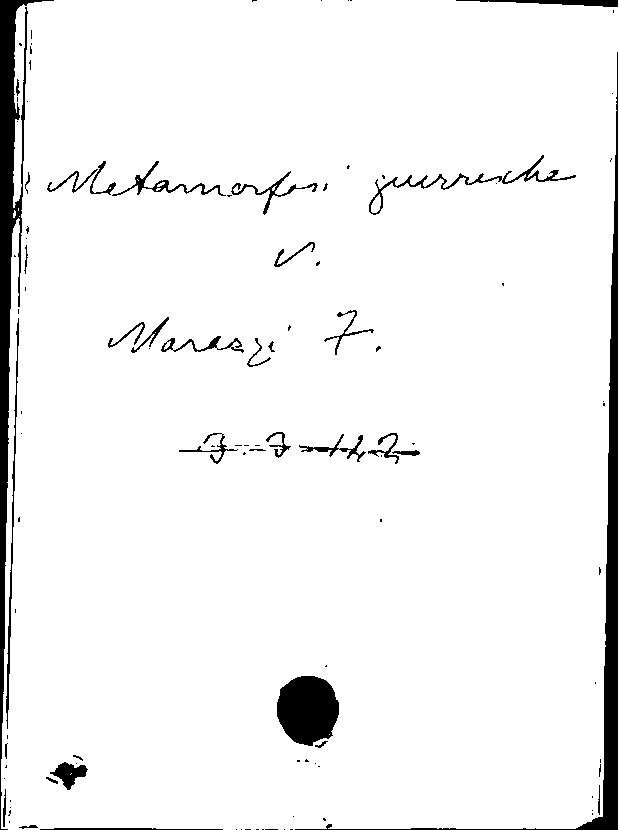 Metamorfosi guerresche
V.
Marazzi F.
3. 3 112